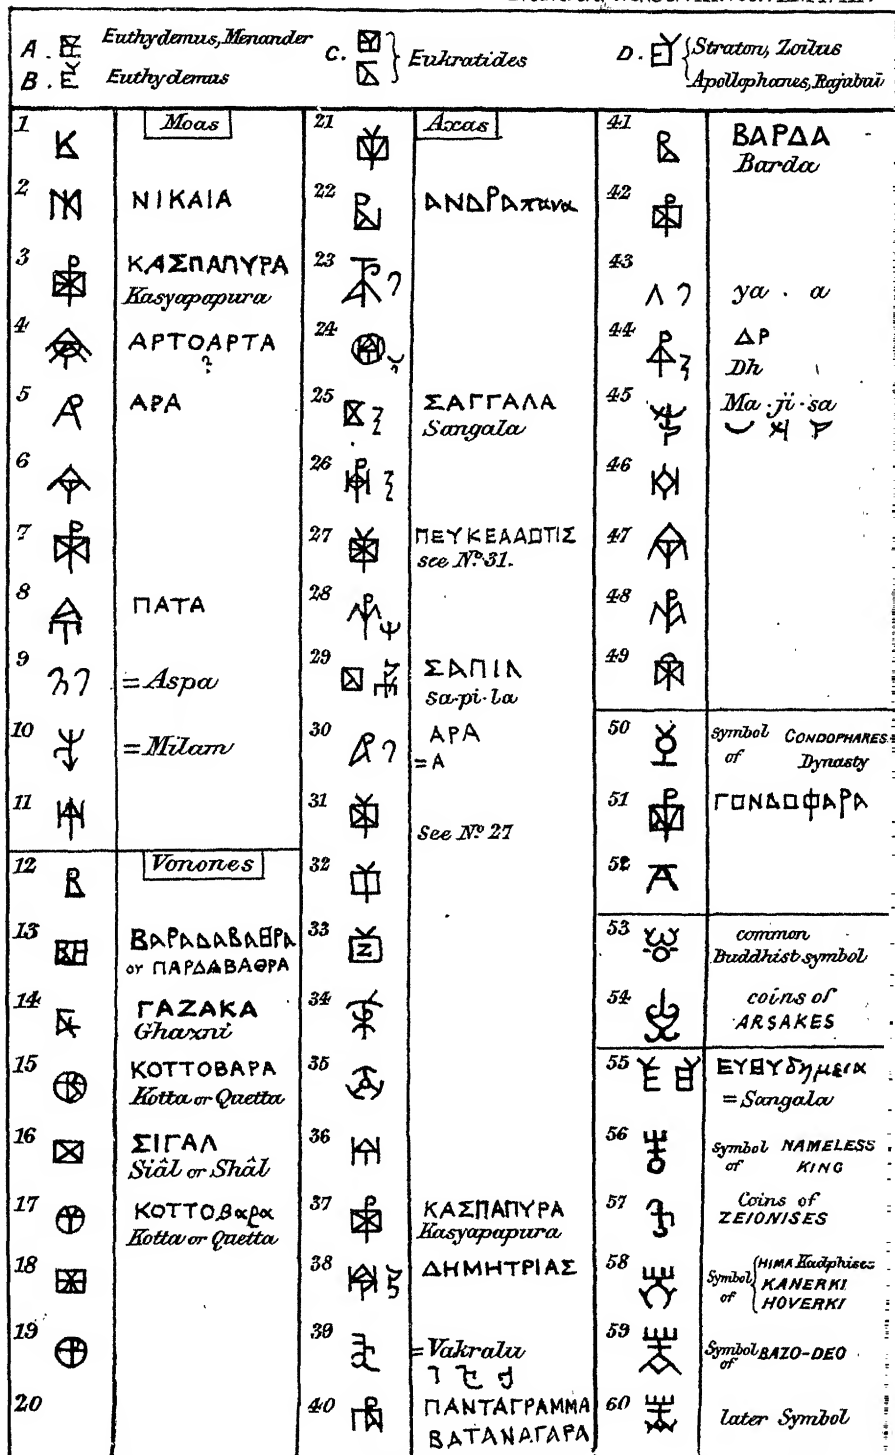 A. Euthydemus, Menander
B. Euthydemus
C. Eukratides
D. Straton, Zoilus
Apollophanes, Rajubaü
1 Moas
2 ΝΙΚΑΙΑ
3 ΚΑΣΠΑΠΥΡΑ
Kasyapapura
4 ΑΡΤΟΑΡΤΑ
?
5 ΑΡΑ
6
7
8 ΠΑΤΑ
9 =Aspa
10 =Milam
11
12 Vonones
13 ΒΑΡΑΔΑΒΑΘΡΑ
or ΠΑΡΔΑΒΑΘΡΑ
14 ΓΑΖΑΚΑ
Ghazni
15 ΚΟΤΤΟΒΑΡΑ
Kotta or Quetta
16 ΣΙΓΑΛ
Siâl or Shâl
17 ΚΟΤΤΟβαρα
Kotta or Quetta
18
19
20
21 Axas
22 ΑΝΔΡΑπανα
23
24
25 ΣΑΓΓΑΛΑ
Sangala
26
27 ΠΕΥΚΕΛΑΩΤΙΣ
see No. 31.
28
29 ΣΑΠΙΛ
sa-pi-la
30 ΑΡΑ
=A
31 See No 27
32
33
34
35
36
37 ΚΑΣΠΑΠΥΡΑ
Kasyapapura
38 ΔΗΜΗΤΡΙΑΣ
39 =Vakralu
40 ΠΑΝΤΑΓΡΑΜΜΑ
ΒΑΤΑΝΑΓΑΡΑ
41 ΒΑΡΔΑ
Barda
42
43 ya . a
44 ΔΡ
Dh
45 Ma-ji-sa
46
47
48
49
50 symbol CONDOPHARES
of Dynasty
51 ΓΟΝΔΟΦΑΡΑ
52
53 common
Buddhist symbol
54 coins of
ARSAKES
55 ΕΥΘΥδημεια
=Sangala
56 symbol NAMELESS
of KING
57 Coins of
ZEIONISES
58 Symbol of HIMA Kadphises
KANERKI
HOVERKI
59 Symbol of BAZO-DEO
60 later Symbol